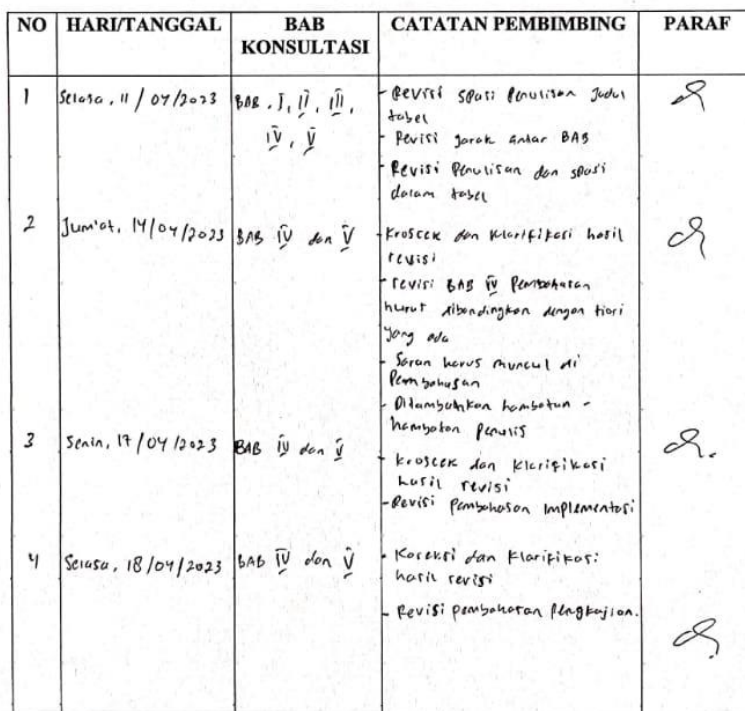 NO HARI/TANGGAL BAB KONSULTASI CATATAN PEMBIMBING PARAF
1 Selasa, 11/04/2023 BAB. I, II, III, IV, V
- Revisi spasi Penulisan Judul tabel
- Revisi jarak antar BAB
- Revisi Penulisan dan spasi dalam tabel
2 Jum'at, 14/04/2023 BAB IV dan V
- Kroscek dan klarifikasi hasil revisi
- revisi BAB IV Pembahasan
dibandingkan dengan tiori
yang ada
- Saran harus muncul di
Pembahasan
- Ditambahkan hambatan -
hambatan penulis
3 Senin, 17/04/2023 BAB IV dan V
- Kroscek dan Klarifikasi
hasil revisi
- Revisi pembahasan implementasi
4 Selasa, 18/04/2023 BAB IV dan V
- Koreksi dan Klarifikasi
hasil revisi
- Revisi pembahasan Pengkajian.